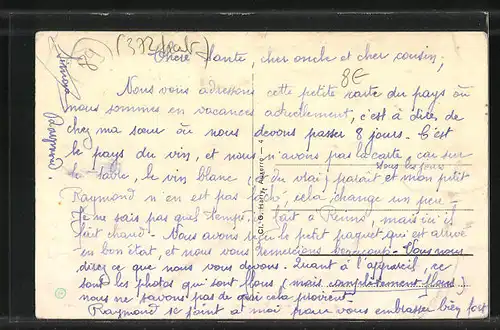 (372 parts)
89
8E
Chère tante, cher oncle et cher cousin,
Nous vous adressons cette petite carte du pays où
nous sommes en vacances actuellement, c'est à dire de
chez ma sœur où nous devons passer 8 jours. C'est
le pays du vin, et nous n'avons pas la carte car sur
la table, le vin blanc, (et du vrai) parait tous les jours et mon petit
Raymond n'en est pas fâché, cela change un peu
Je ne sais pas quel temps il fait à Reims, mais ici il
fait chaud. Nous avons reçu le petit paquet qui est arrivé
en bon état, et nous vous remercions beaucoup. Vous nous
direz ce que nous vous devons. Quant à l'appareil, ce
sont les photos qui sont flous (mais complètement flous)
nous ne savons pas de quoi cela provient.
Raymond se joint à moi pour vous embrasser bien fort
Raymond
Simone